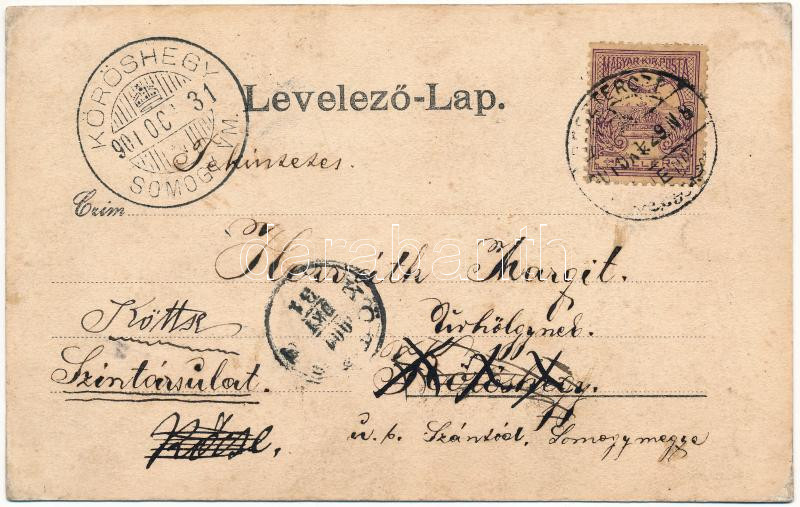 MAGYAR KIR. POSTA
KÖRÖSHEGY
901 OCT 31
SOMOGY VM.
Levelező-Lap.
Tekintetes
Czim
Horváth Margit.
Úrhölgynek.
Kőröshegy.
u. p. Szántód, Somogymegye
Köttse
Szintársulat.
darabanth